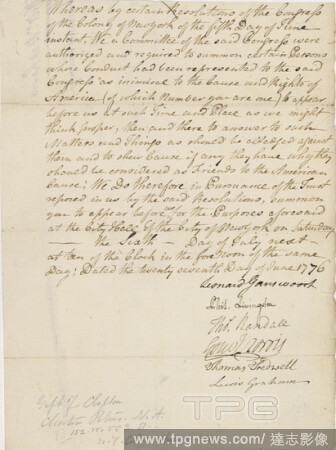 Whereas by certain Resolutions of the Congress
of the Colony of Newyork of the fifth Day of June
instant. We a Committee of the said Congress were
authorized and required to summon certain Persons
whose Conduct had been represented to the said
Congress as inimical to the Cause and Rights of
America (of which Number you are one) to appear
before us at such Time and Place as we might
think proper, then and there to answer to such
Matters and Things as should be alledged against
them and to shew Cause if any they have why they
should be considered as Friends to the American
Cause; We do therefore in Pursuance of the Trust
reposed in us by the said Resolutions, summon
you to appear before for the Purposes aforesaid
at the City Hall of the City of Newyork on Saturday
the Sixth Day of July next
at ten of the Clock in the fore noon of the same
Day; Dated the twenty seventh Day of June 1776
Leonard Gansevoort
Phil. Livingston
Tho. Randall
Gouv Morris
Thomas Tredwell
Lewis Graham
TPG
www.tpgnews.com / 達志影像